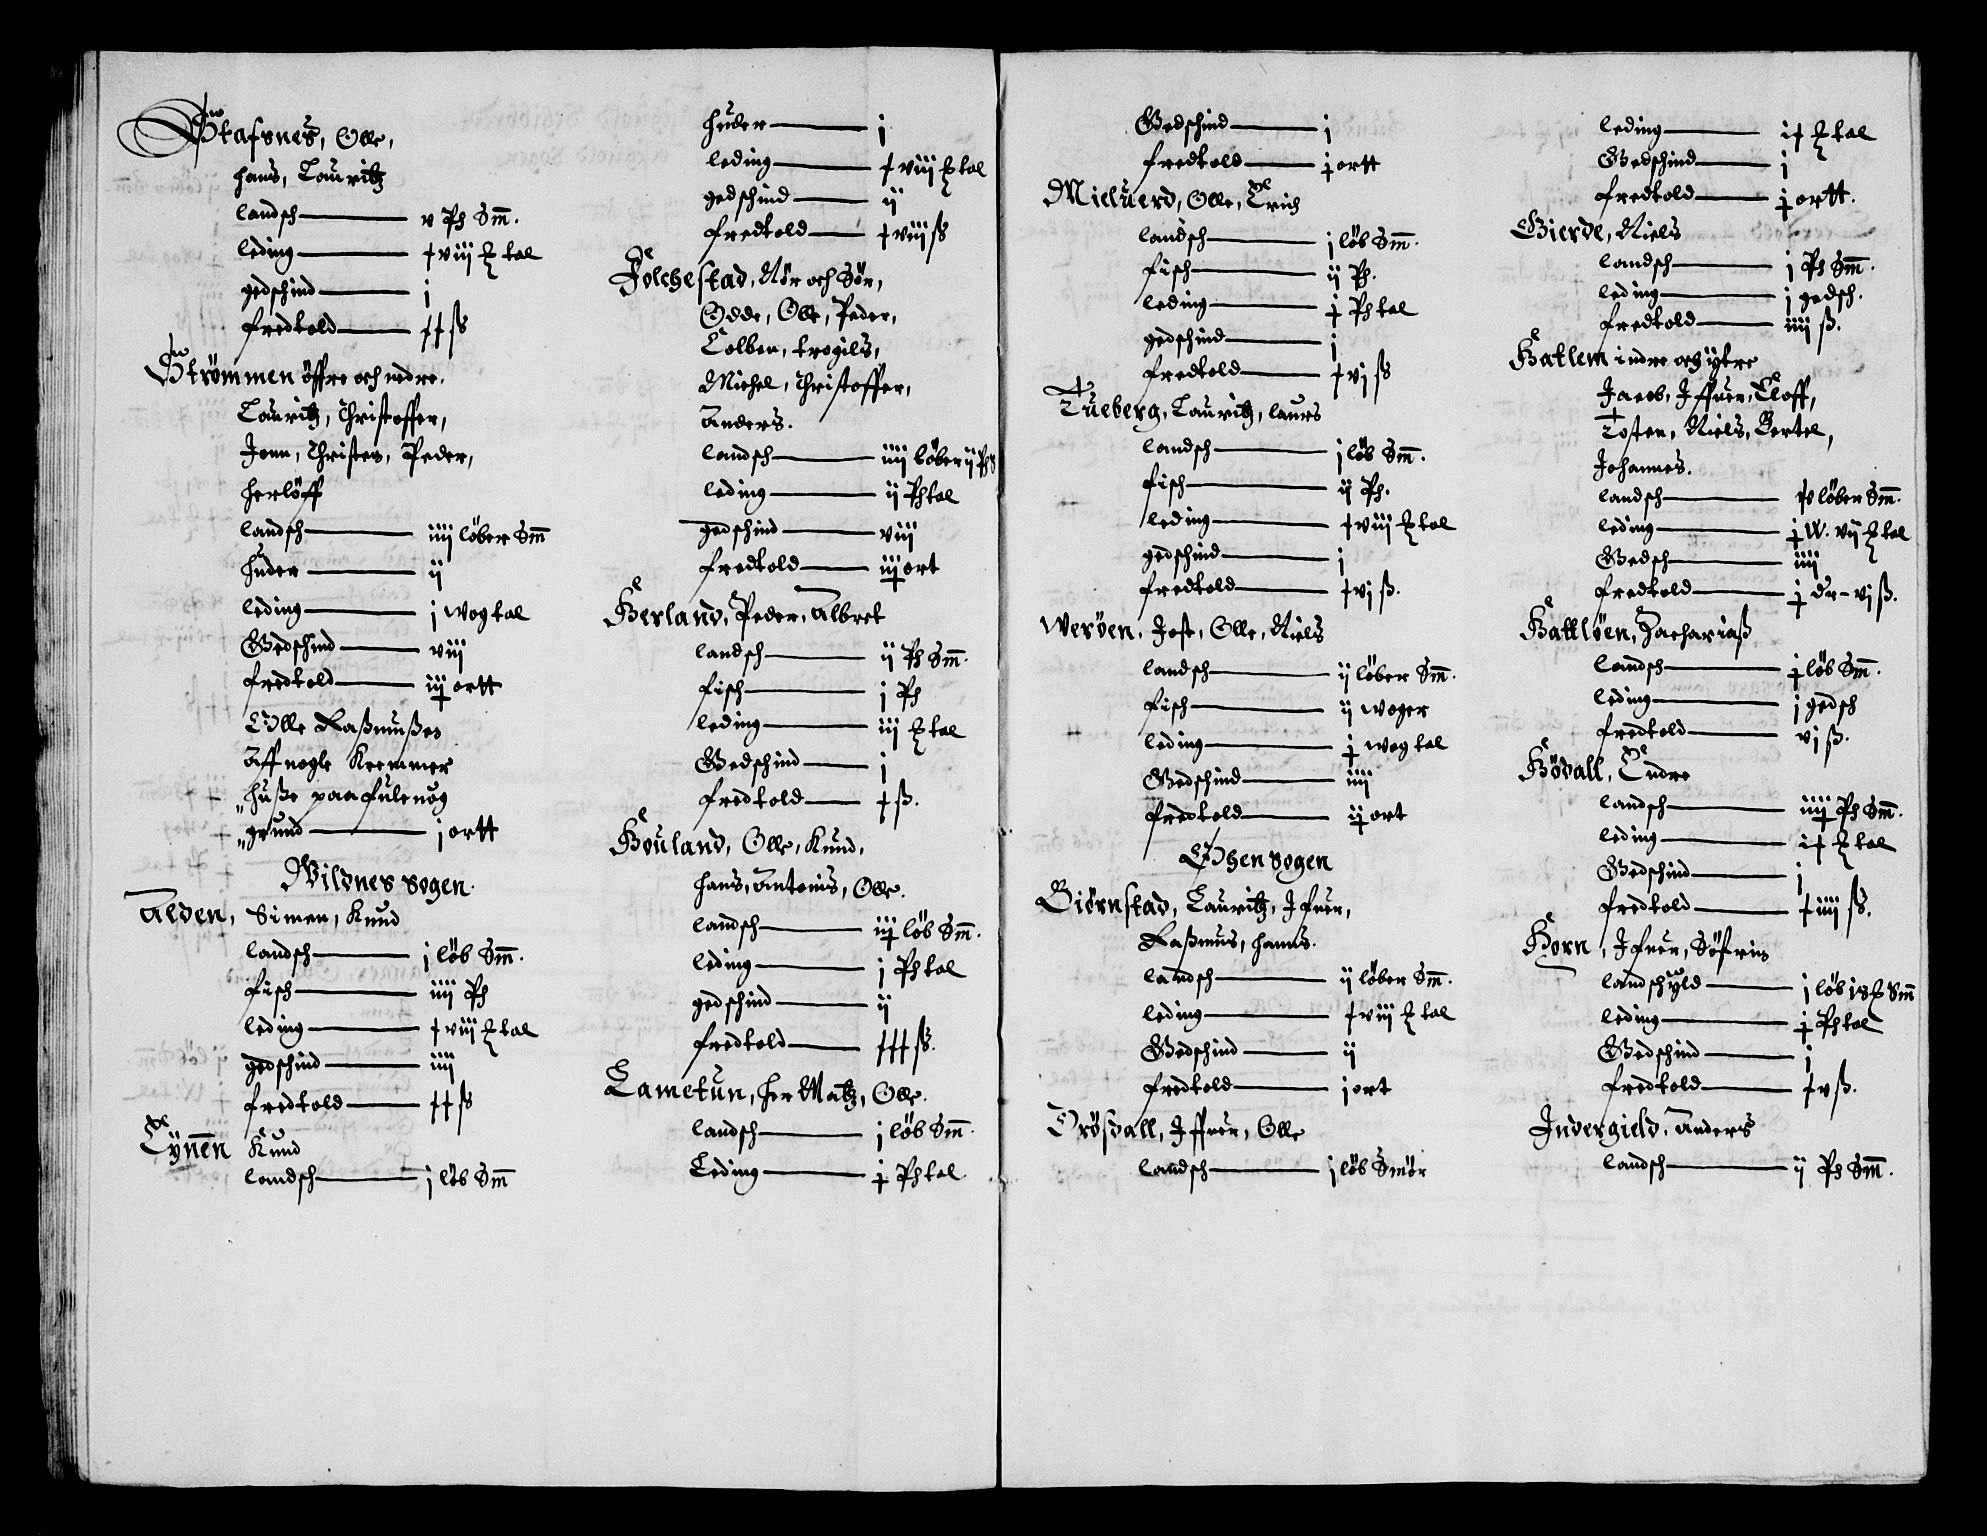 Stafsnes, Olle,
Hans, Lauritz
landsch — v Ph Sm̄.
leding — tviij ℔ tal
gedschind — j
fredtold — tt ß
Strömmen öffre och nedre.
Lauritz, Christoffer,
Jenn, Christen, Peder,
Herlöff
landsch — iiij löber Sm̄
Huder — ij
leding — j wog tal
Gedschind — viij
fredtold — iij ortt
Olle Raßmußen
Aff nogle Kremmer
„ Huße paa fulenog
„ grund — j ortt
Wildnes sogen.
Alden, Simen, Knud
landsch — j löb Sm̄.
fisch — iiij Ph
leding — tviij ℔ tal
gedschind — iiij
fredtold — tt ß
Eÿnen Knud
landsch — j löb Sm̄
Huder — j
leding — tviij ℔ tal
gedschind — ij
fredtold — tviij ß
Folchestad, Nör och Sör,
Odde, Olle, Peder,
Colben, trogils,
Michel, Christoffer,
Anders.
landsch — iiij löber ij Ph S
leding — ij Ph tal
gedschind — viij
fredtold — iij ort
Herland, Peder, Albret
landsch — ij Ph Sm̄.
fisch — j Ph
leding — iij ℔ tal
Gedschind — j
fredtold — t ß.
Houland, Olle, Knud,
Hans, Antonis, Olle.
landsch — iij löb Sm̄.
leding — j Ph tal
gedschind — ij
fredtold — ttt ß.
Lametun, Her Matz, Olle.
landsch — j löb Sm̄.
Leding — j Ph tal.
Gedschind — j
fredtold — j ortt
Mieluerd, Olle, Erich
landsch — j löb Sm̄.
fisch — ij Ph.
leding — j Ph tal
gedschind — j
fredtold — tvj ß
Tueberg, Lauritz, laurs
landsch — j löb Sm̄.
fisch — ij Ph.
leding — tviij ℔ tal
gedschind — j
fredtold — tvj ß.
Weröen, Jost, Olle, Niels
landsch — ij löber Sm̄.
fisch — ij woger
leding — j wog tal
Gedschind — iiij
fredtold — ij ort
Ohen sogen
Biörnstad, Lauritz, Ifuer,
Raßmus, Hanns.
landsch — ij löber Sm̄.
leding — tviij ℔ tal
Gedschind — ij
fredtold — j ort
Drösdall, Iffuer, Olle
landsch — j löb Smör
leding — it ℔ tal
Gedschind — j
fredtold — j ortt.
Gierde, Niels
landsch — j Ph Sm̄.
leding — j gedsch.
fredtold — iiij ß.
Hatlem indre och ÿtre
Jacob, Iffuer, Eloff,
Tosten, Niels, Bertel,
Johannes.
landsch — v löber Sm̄.
leding — j W. vij ℔ tal
Gedsch — iiij
fredtold — j dr – vj ß.
Hattlöen, Zachariaß
landsch — j löb Sm̄.
leding — j gedsch
fredtold — vj ß.
Hödall, Endre
landsch — iiij Ph Sm̄.
leding — it ℔ tal
Gedschind — j
fredtold — tiiij ß.
Horn, Ifuer, Söfrin
landschÿld — j löb j8 ℔ Sm̄
leding — j Ph tal
Gedschind — j
fredtold — tv ß.
Indergield, Anders
landsch — ij Ph Sm̄.